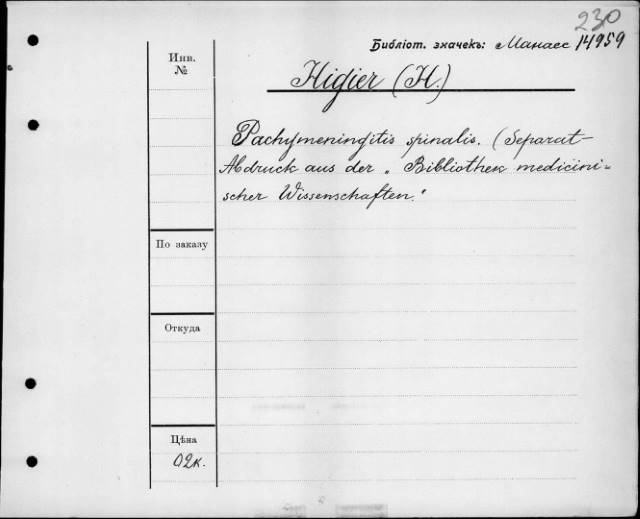 230
Библіот. значекъ: Манасс 14959
Инв. №
Higier (H.)
Pachymeningitis spinalis. (Separat-
Abdruck aus der „Bibliothek medicini-
scher Wissenschaften."
По заказу
Откуда
Цѣна
02к.